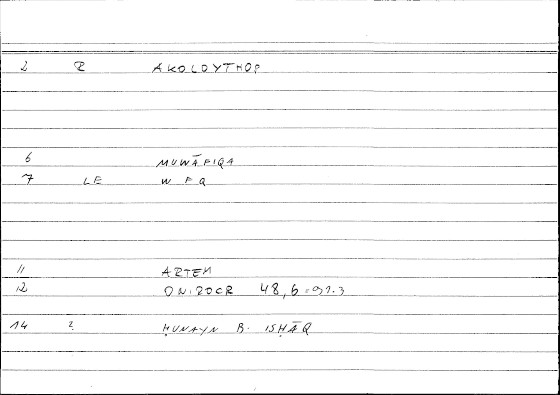 2 R AKOLOYTHOP
6 MUWĀFIQA
7 LE W F Q
11 ARTEM
12 ONIROCR 48,6 = 91.3
14 2 ḤUNAYN B. ISḤĀQ